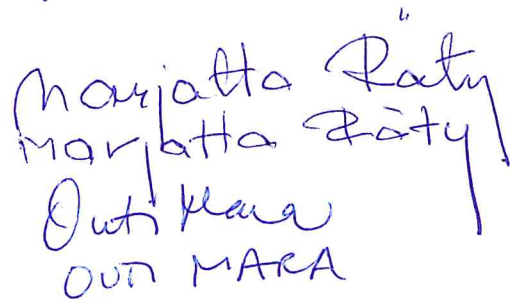 Marjatta Räty
Marjatta Räty
Outi Mara
OUTI MARA